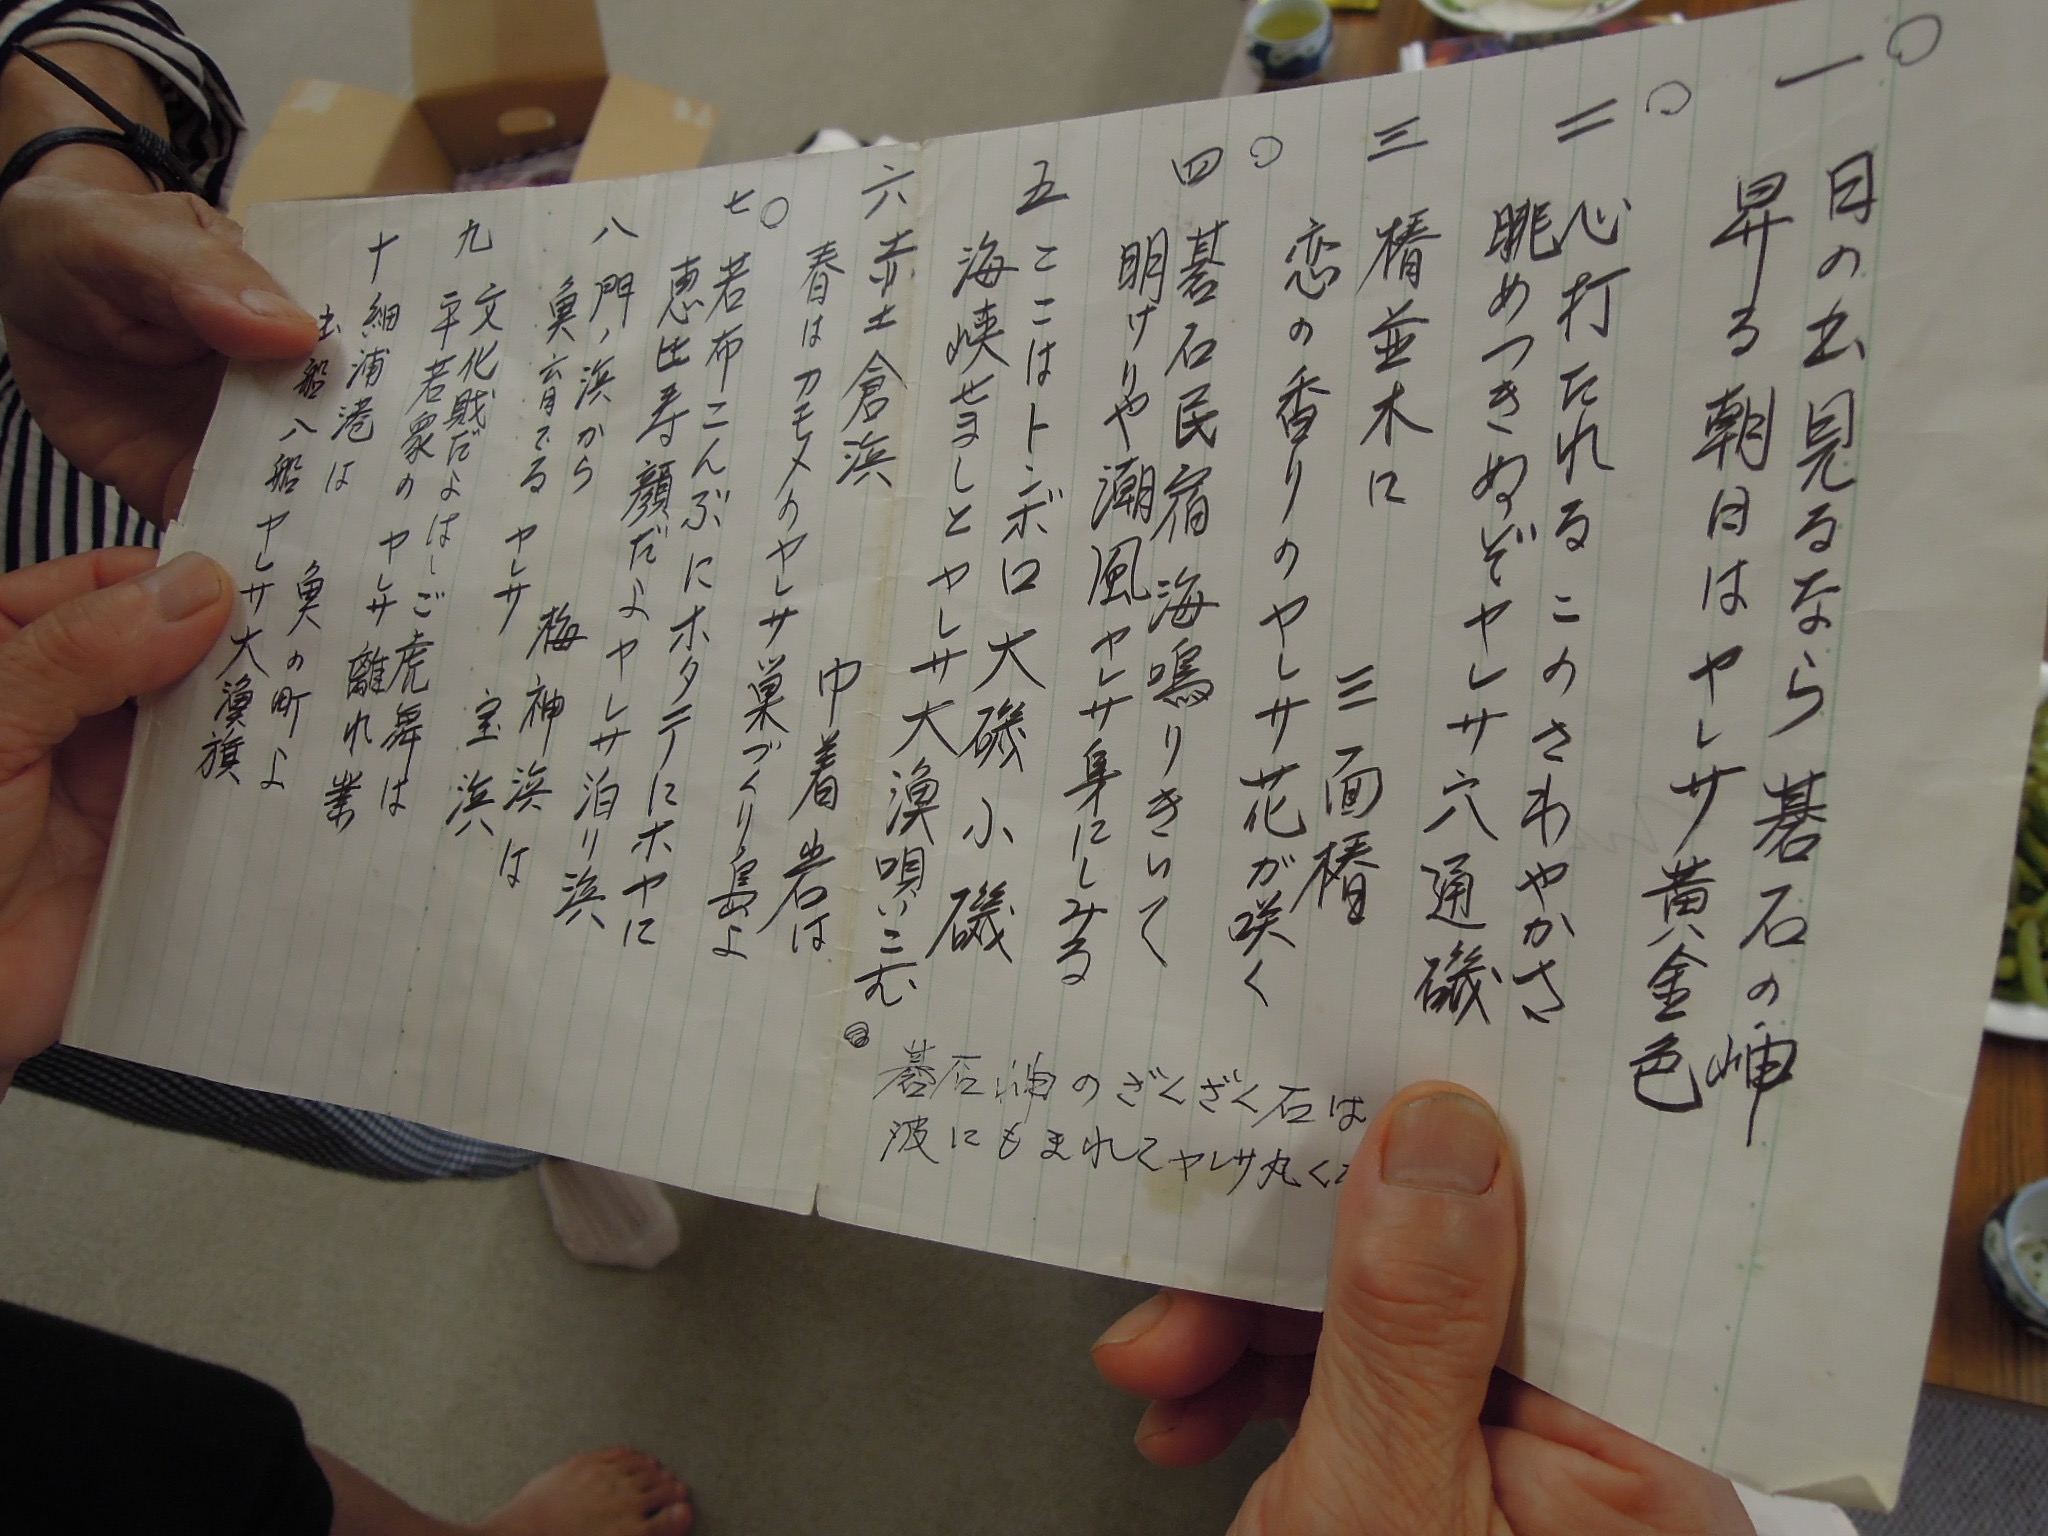 ○
一 日の出見るなら 碁石の岬
昇る朝日はヤレサ黄金色
○
二 心打たれるこのさわやかさ
眺めつきぬぞヤレサ穴通磯
三 椿並木に 三面椿
恋の香りのヤレサ花が咲く
○
四 碁石民宿 海鳴りきいて
明けりや潮風ヤレサ身にしみる
五 ここはトンボロ 大磯小磯
海峡せましとヤレサ大漁唄いこむ
六 赤土倉浜 巾着岩は
春はカモメのヤレサ巣づくり島よ
○
七 若布こんぶにホタテにホヤに
恵比寿顔だよヤレサ泊り浜
八 門ノ浜から 梅神浜は
魚育でるヤレサ 宝浜
九 文化賎だよはしご虎舞は
平若衆のヤレサ離れ業
十 細浦港は 魚の町よ
出船入船ヤレサ大漁旗
碁石岬のざくざく石は
波にもまれてヤレサ丸く